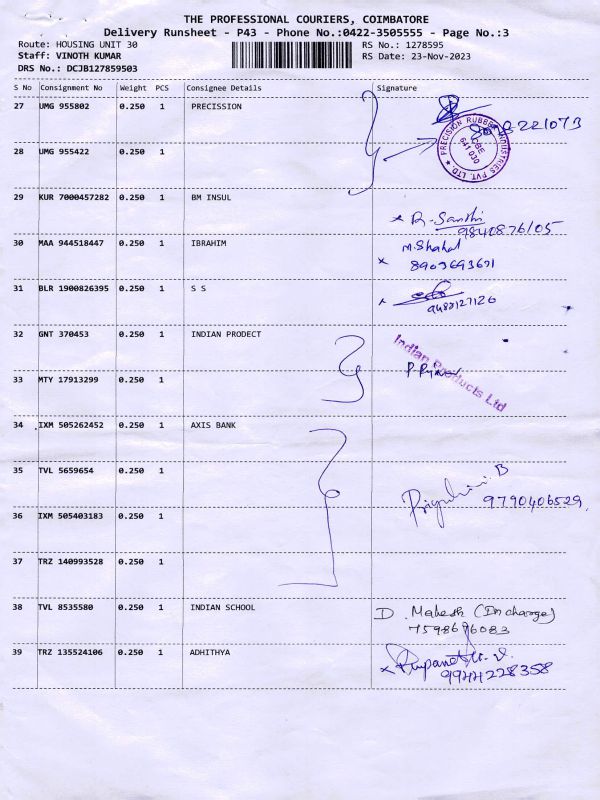 THE PROFESSIONAL COURIERS, COIMBATORE
Delivery Runsheet - P43 - Phone No.:0422-3505555 - Page No.:3
Route: HOUSING UNIT 30
RS No.: 1278595
Staff: VINOTH KUMAR
RS Date: 23-Nov-2023
DRS No.: DCJB127859503
S No Consignment No Weight PCS Consignee Details Signature
27 UMG 955802 0.250 1 PRECISSION
PRECISION RUBBER INDUSTRIES PVT. LTD.
CBE
641 030
28 UMG 955422 0.250 1
29 KUR 7000457282 0.250 1 BM INSUL
x R. Santhi
9840876105
30 MAA 944518447 0.250 1 IBRAHIM
M. Shahul
x 8903693691
31 BLR 1900826395 0.250 1 S S
9488127126
32 GNT 370453 0.250 1 INDIAN PRODECT
Indian Products Ltd
33 MTY 17913299 0.250 1
34 IXM 505262452 0.250 1 AXIS BANK
35 TVL 5659654 0.250 1
B
9790406529
36 IXM 505403183 0.250 1
37 TRZ 140993528 0.250 1
38 TVL 8535580 0.250 1 INDIAN SCHOOL
D. Mahesh (In charge)
7598696083
39 TRZ 135524106 0.250 1 ADHITHYA
x
9944228358